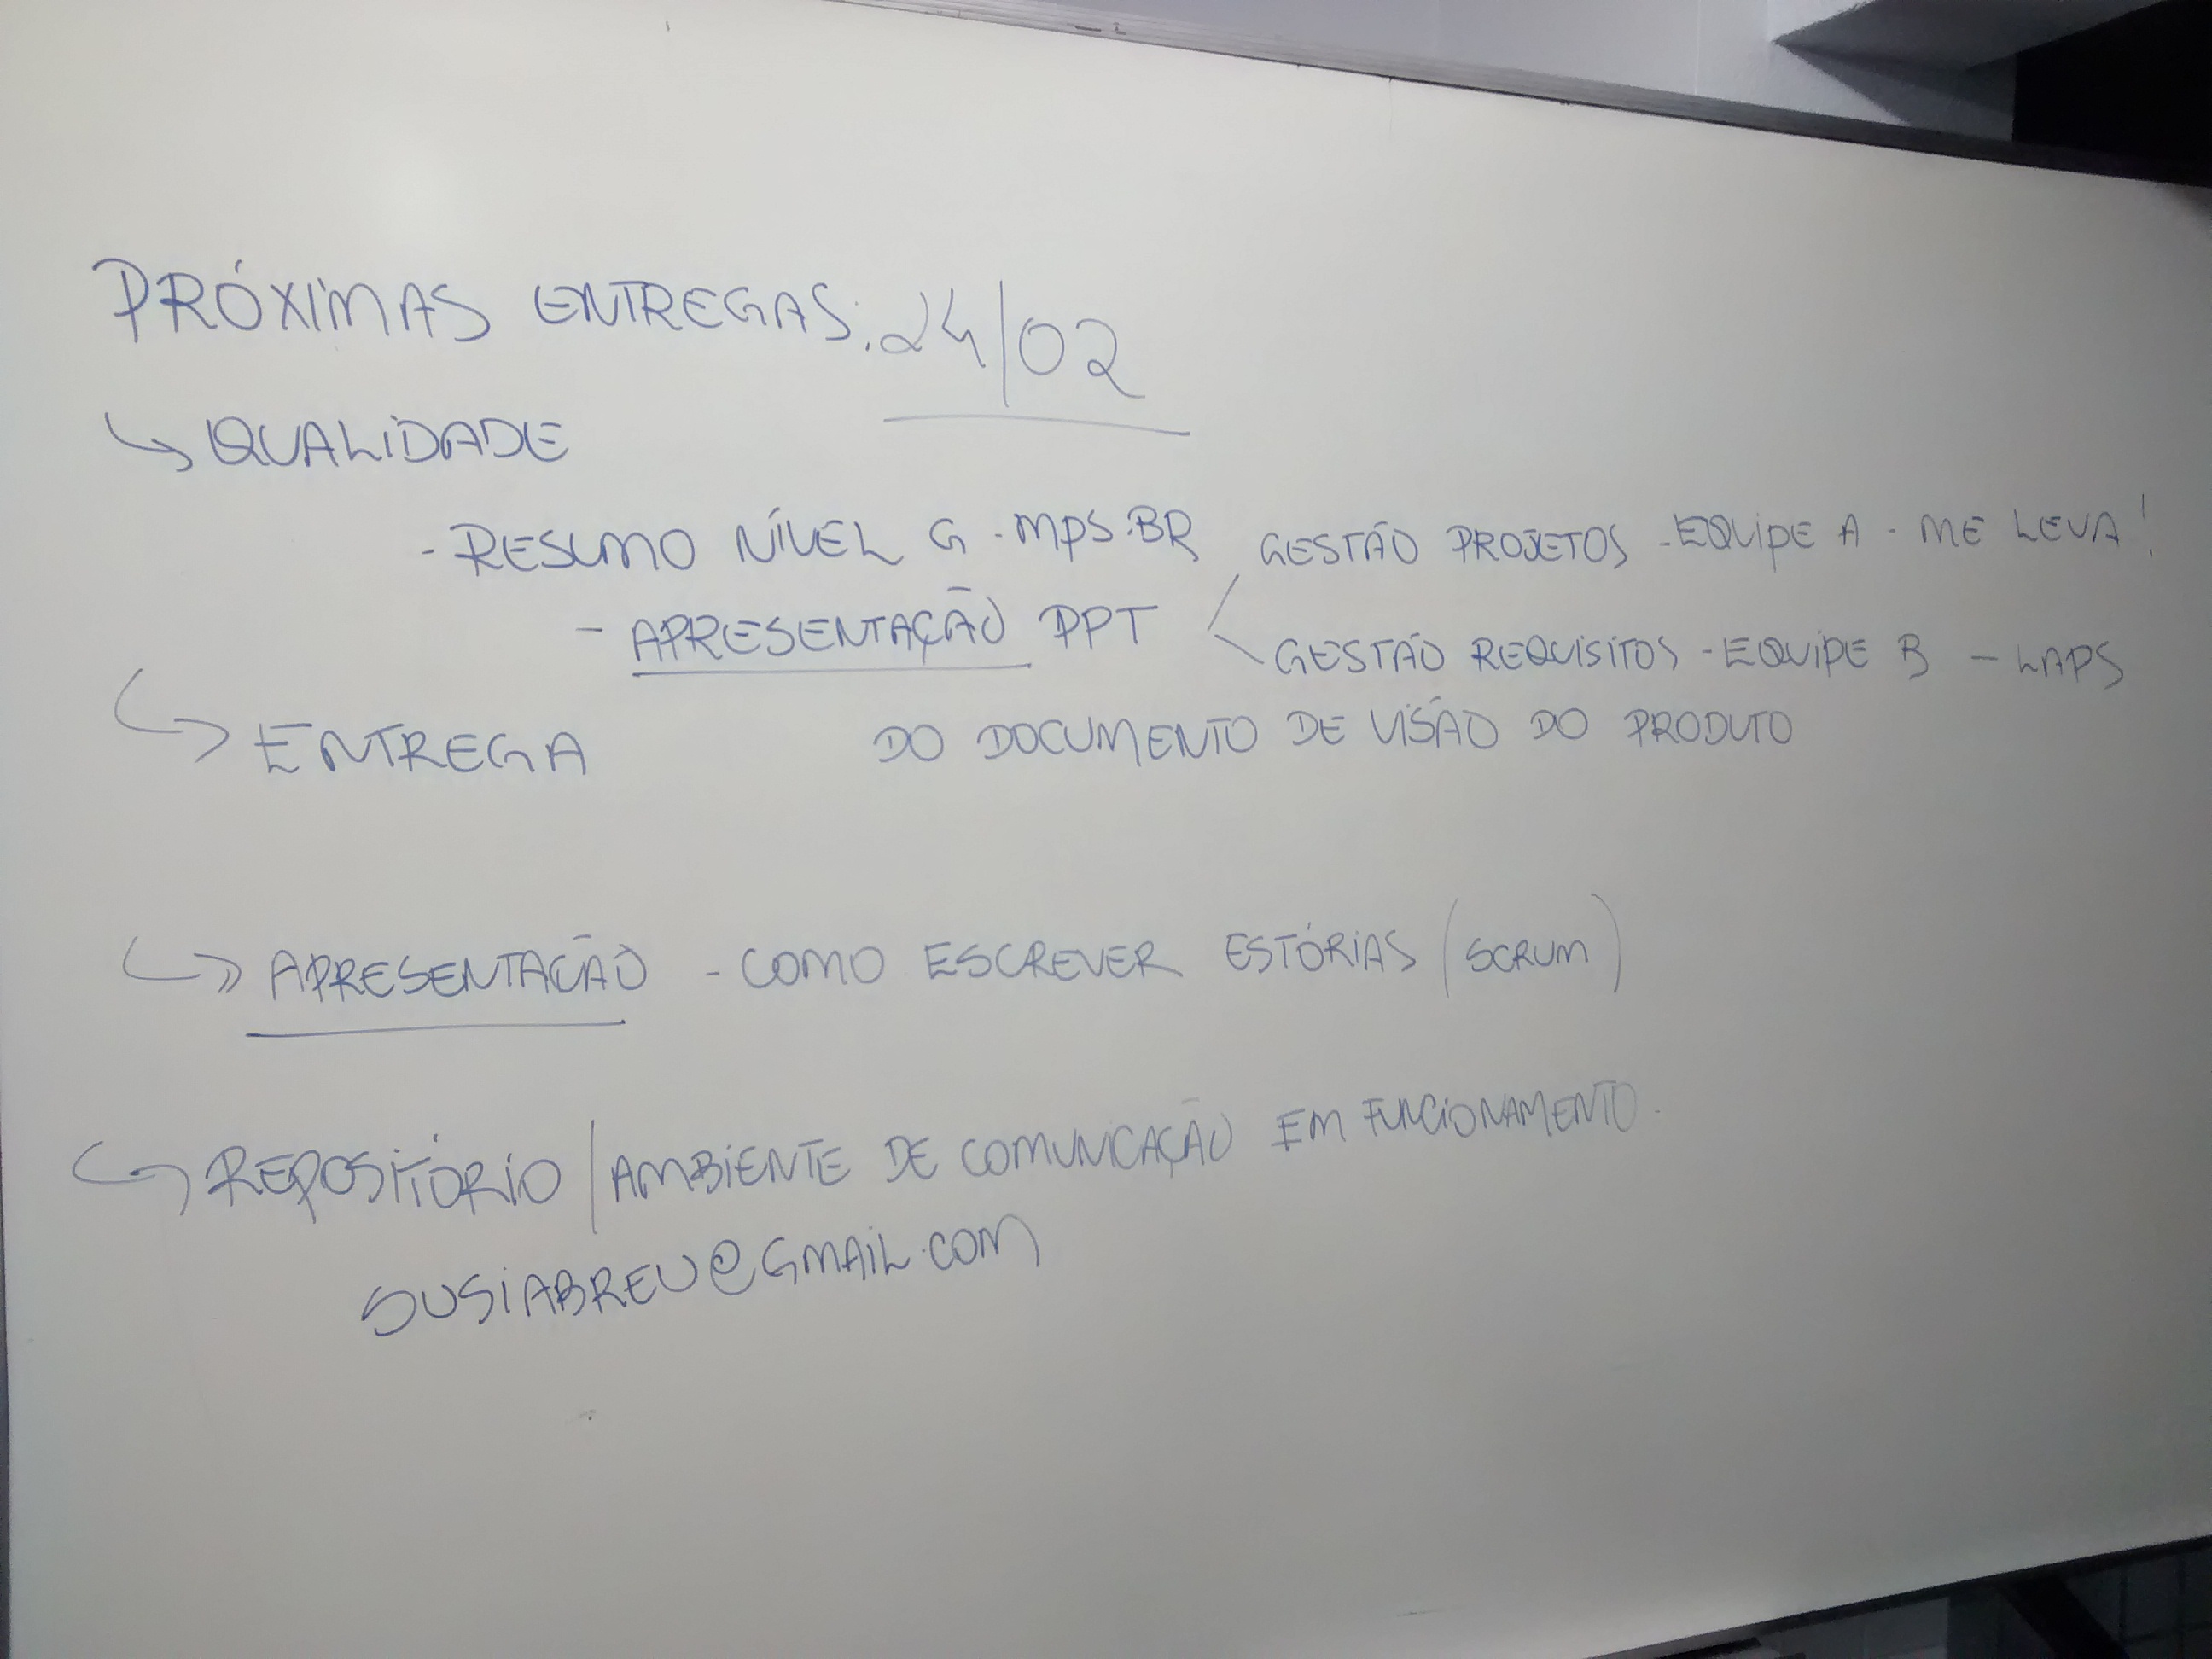 PRÓXIMAS ENTREGAS: 24/02
↳ QUALIDADE
- RESUMO NÍVEL G - MPS.BR
- APRESENTAÇÃO PPT < GESTÃO PROJETOS - EQUIPE A - ME LEVA!
GESTÃO REQUISITOS - EQUIPE B - LAPS
↳ ENTREGA DO DOCUMENTO DE VISÃO DO PRODUTO
↳ APRESENTAÇÃO - COMO ESCREVER ESTÓRIAS (SCRUM)
↳ REPOSITÓRIO / AMBIENTE DE COMUNICAÇÃO EM FUNCIONAMENTO.
SUSIABREU@GMAIL.COM